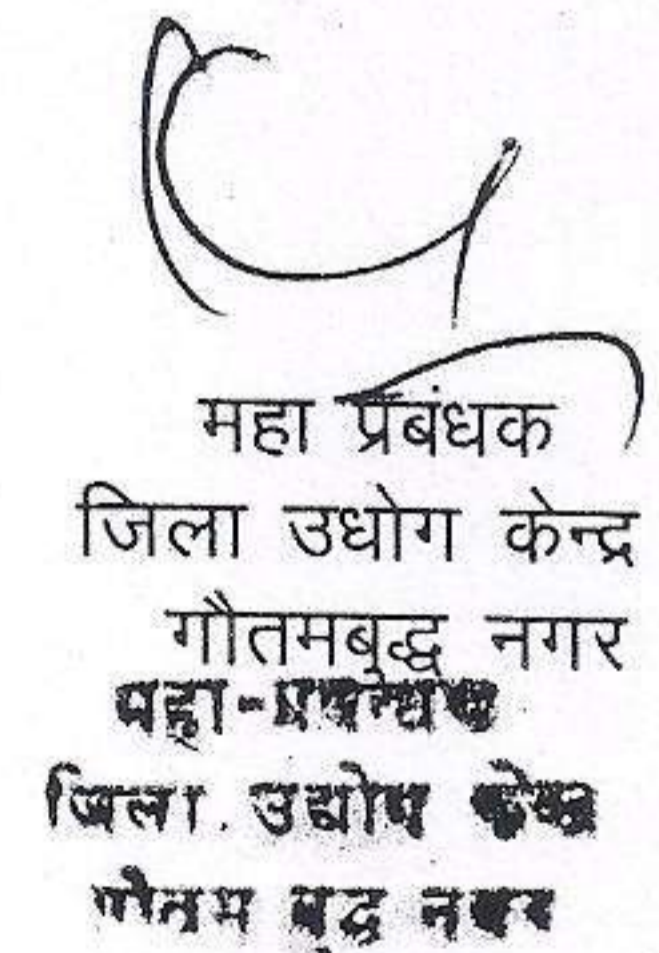 महा प्रबंधक
जिला उधोग केन्द्र
गौतमबुद्ध नगर
महा-प्रबन्धक
जिला उद्योग केन्द्र
गौतम बुद्ध नगर